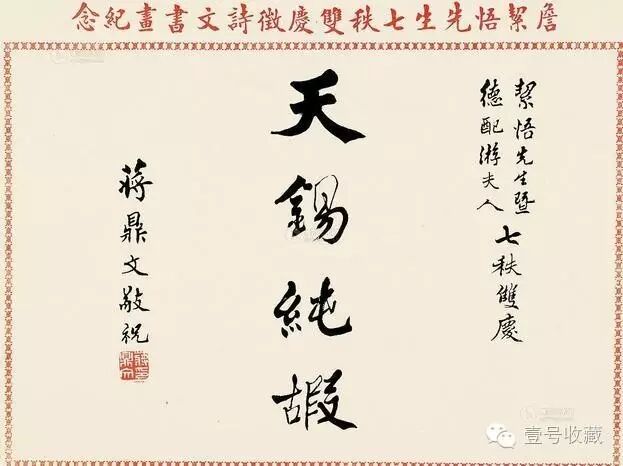 詹絜悟先生七秩雙慶徵詩文書畫紀念
絜悟先生暨
德配游夫人
七秩雙慶
天錫純嘏
蔣鼎文敬祝
壹号收藏